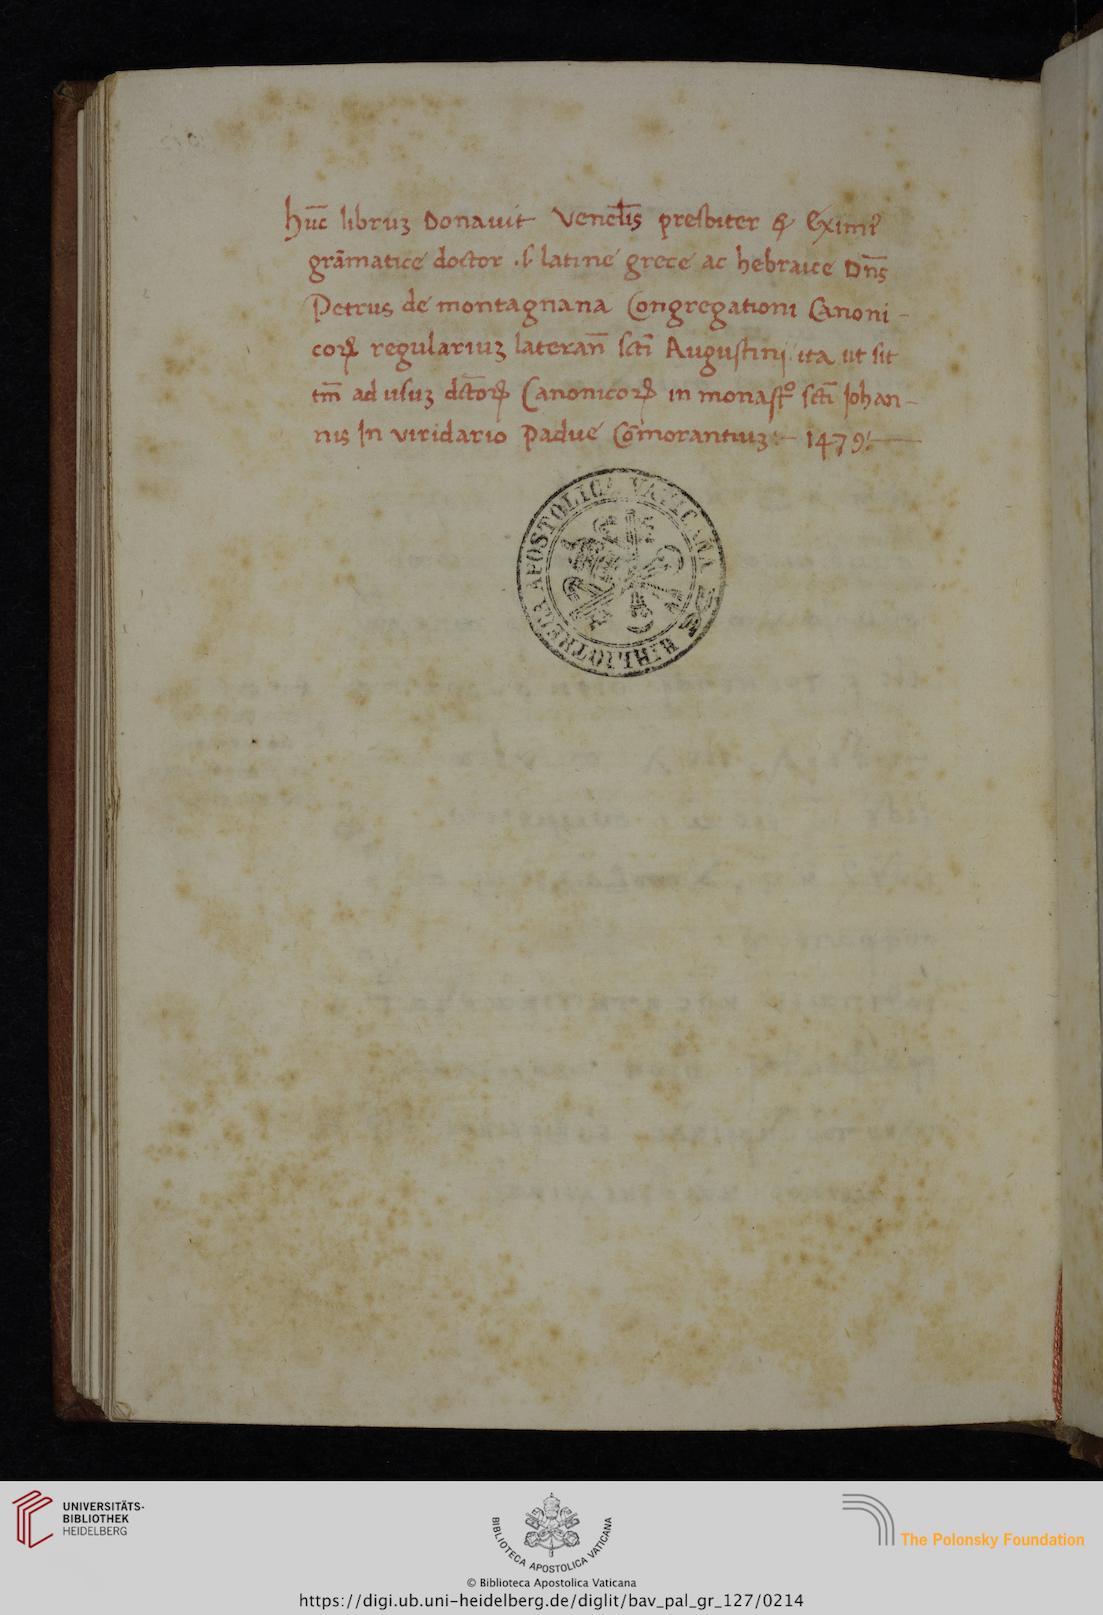 hūc libruꝫ Donauit Venel̄is presbiter & Eximiꝰ
grāmatice doctor .ſ. latine grece ac hebraice Dn̄s
Petrus de montagnana Congregationi Canoni-
coꝝ regulariuꝫ lateran̄ sctī Augustini ita ut sit
tm̄ ad usuꝫ dctōꝝ Canonicoꝝ in monastº sctī Johan-
nis In viridario Padue Cōmorantiuꝫ :- 1479 :-
BIBLIOTHECA APOSTOLICA VATICANA
UNIVERSITÄTS-
BIBLIOTHEK
HEIDELBERG
BIBLIOTECA APOSTOLICA VATICANA
The Polonsky Foundation
© Biblioteca Apostolica Vaticana
https://digi.ub.uni-heidelberg.de/diglit/bav_pal_gr_127/0214